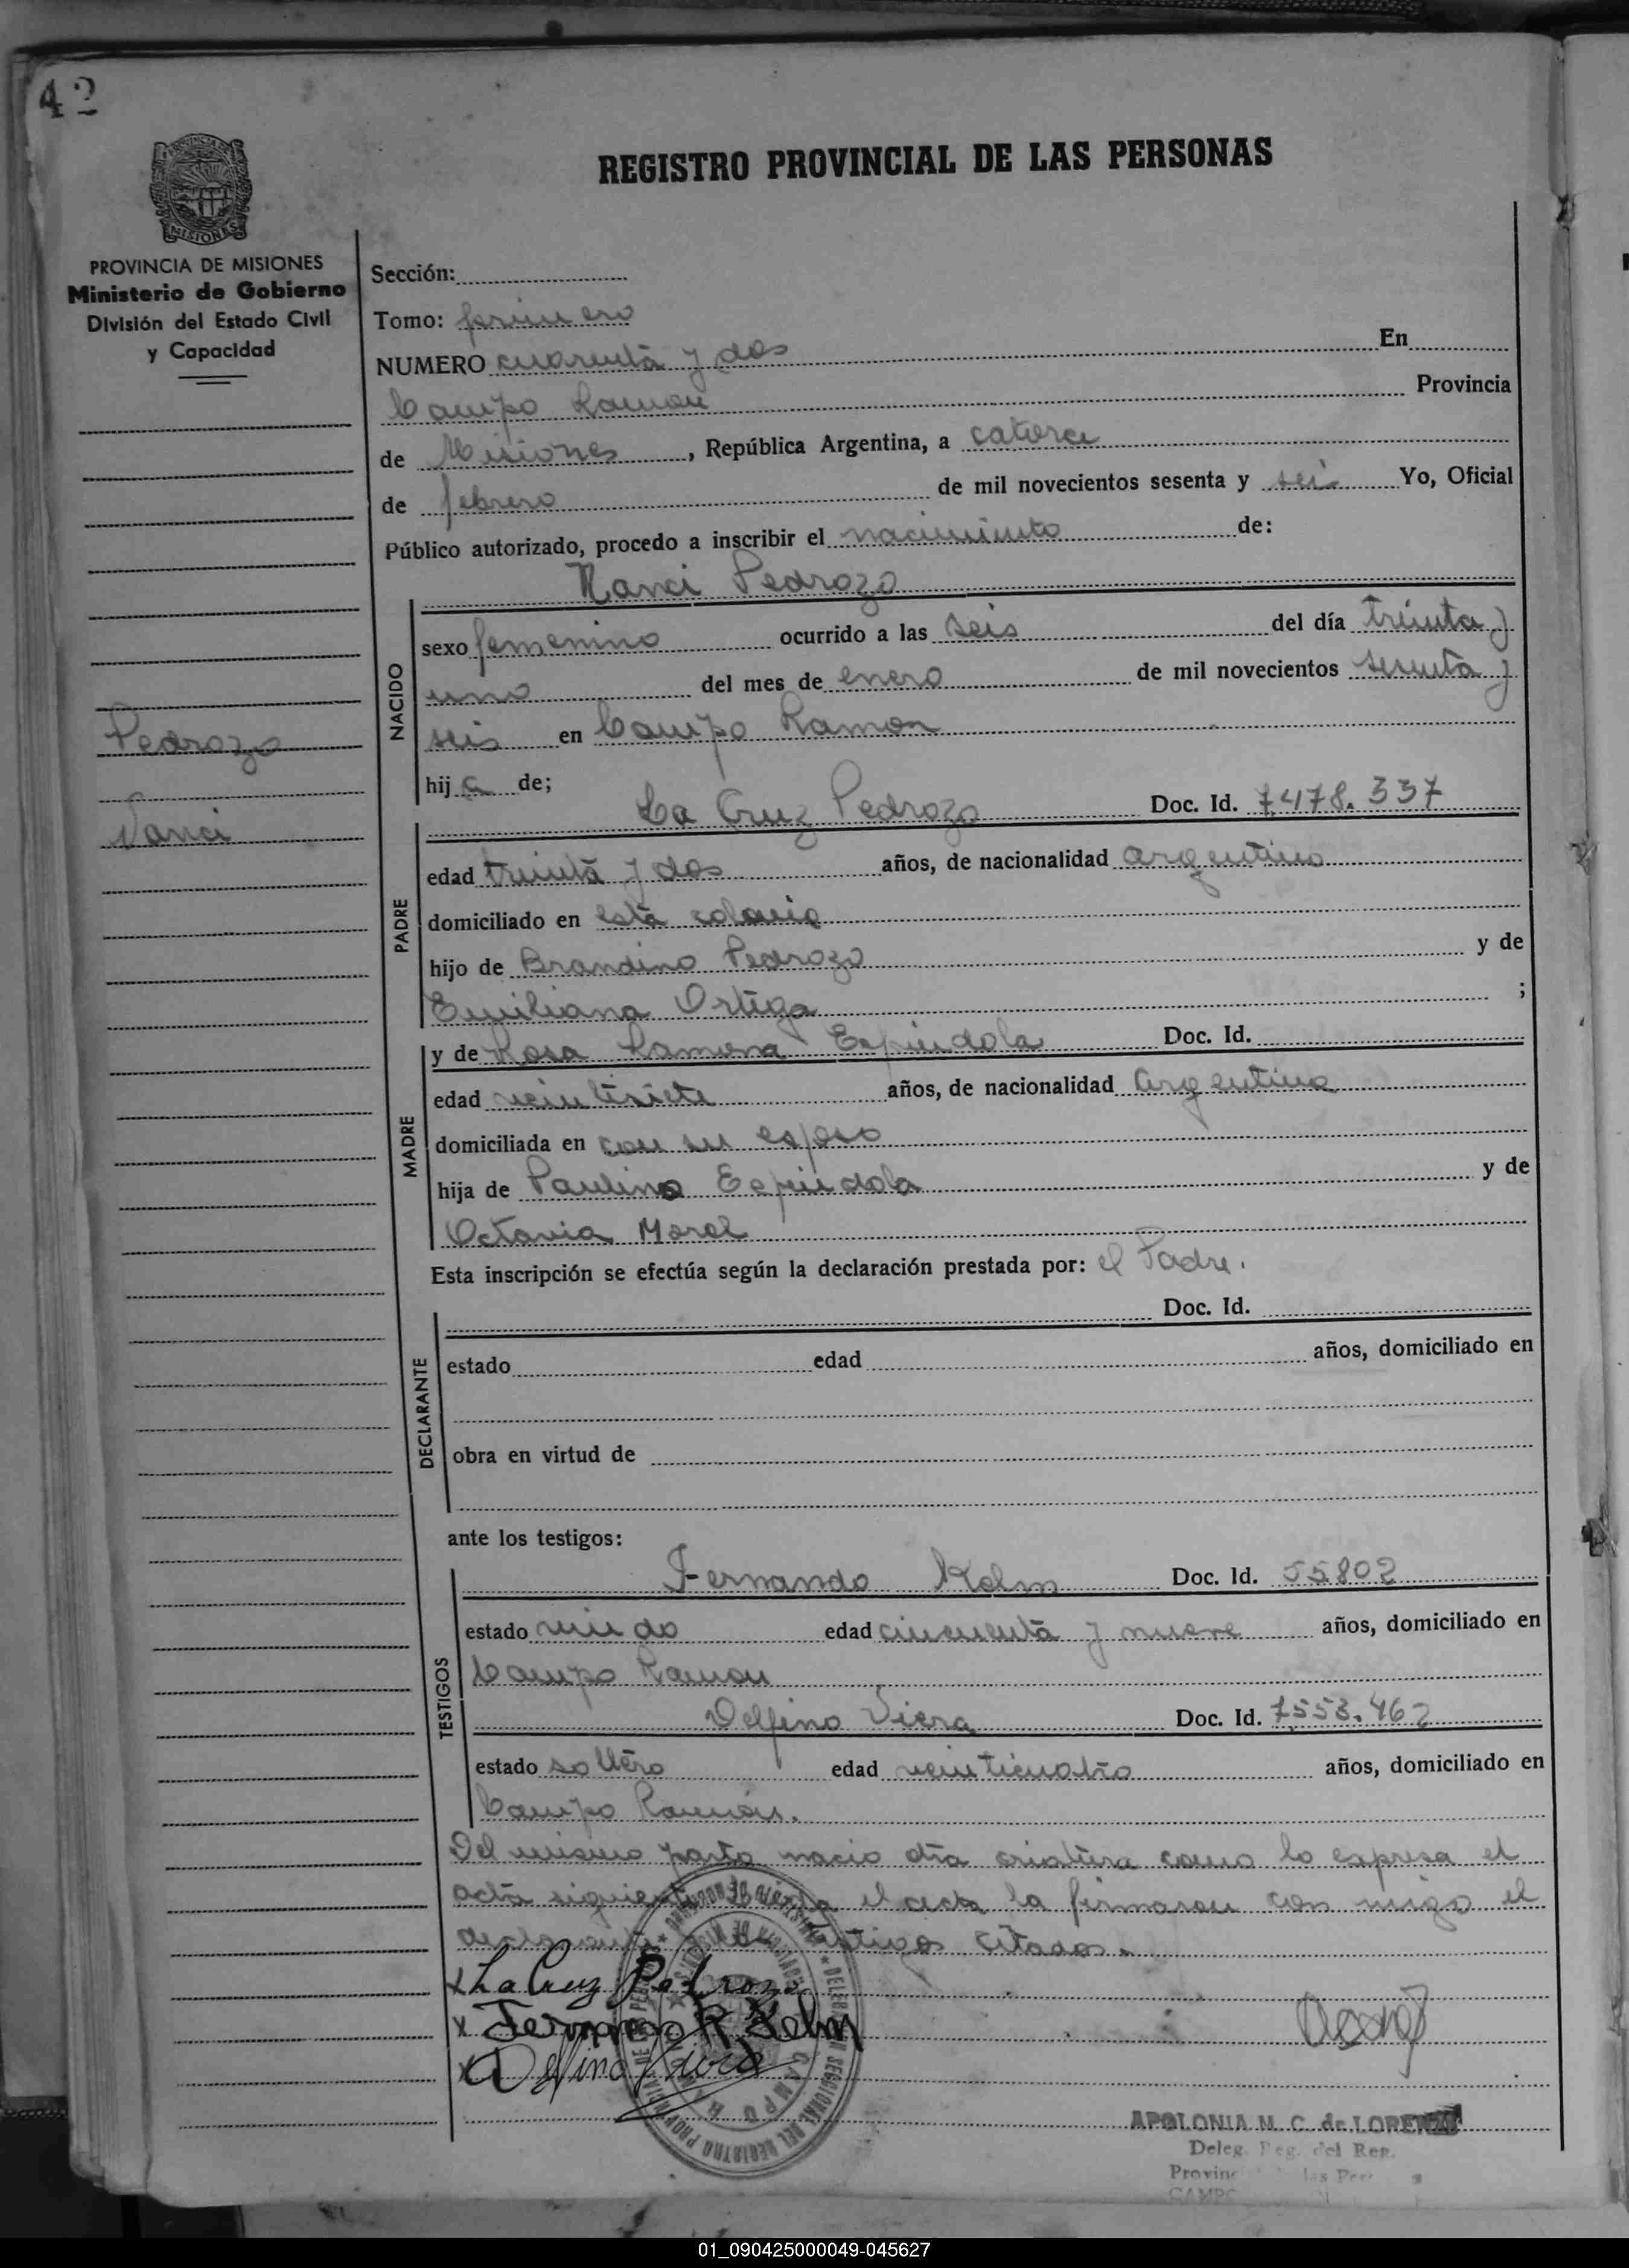 42
REGISTRO PROVINCIAL DE LAS PERSONAS
MISIONES
PROVINCIA DE MISIONES
Ministerio de Gobierno
División del Estado Civil
y Capacidad
Pedrozo
Nanci
Sección:
Tomo: primero
NUMERO cuarenta y dos En
Campo Ramon Provincia
de Misiones, República Argentina, a catorce
de febrero de mil novecientos sesenta y seis Yo, Oficial
Público autorizado, procedo a inscribir el nacimiento de:
Nanci Pedrozo
NACIDO
sexo femenino ocurrido a las seis del día treinta y
uno del mes de enero de mil novecientos sesenta y
seis en Campo Ramon
hija de;
La Cruz Pedrozo Doc. Id. 7.478.337
PADRE
edad treinta y dos años, de nacionalidad argentino
domiciliado en esta colonia
hijo de Brandino Pedrozo y de
Emiliana Ortiga ;
MADRE
y de Rosa Ramona Espindola Doc. Id.
edad veintisiete años, de nacionalidad argentina
domiciliada en con su esposo
hija de Paulino Espindola y de
Octavia Morel
Esta inscripción se efectúa según la declaración prestada por: el Padre.
DECLARANTE
Doc. Id.
estado edad años, domiciliado en
obra en virtud de
ante los testigos:
TESTIGOS
Fernando Kelm Doc. Id. 55802
estado viudo edad cincuenta y nueve años, domiciliado en
Campo Ramon
Delfino Viera Doc. Id. 7.553.462
estado soltero edad veinticuatro años, domiciliado en
Campo Ramón.
Del mismo parto nacio otra criatura como lo expresa el
acta siguiente el acta la firmaron con migo el
declarante testigos citados.
x La Cruz Pedrozo
x Fernando R. Kelm
x Delfino Viera
APOLONIA M. C. de LORENZO
Deleg. Reg. del Reg.